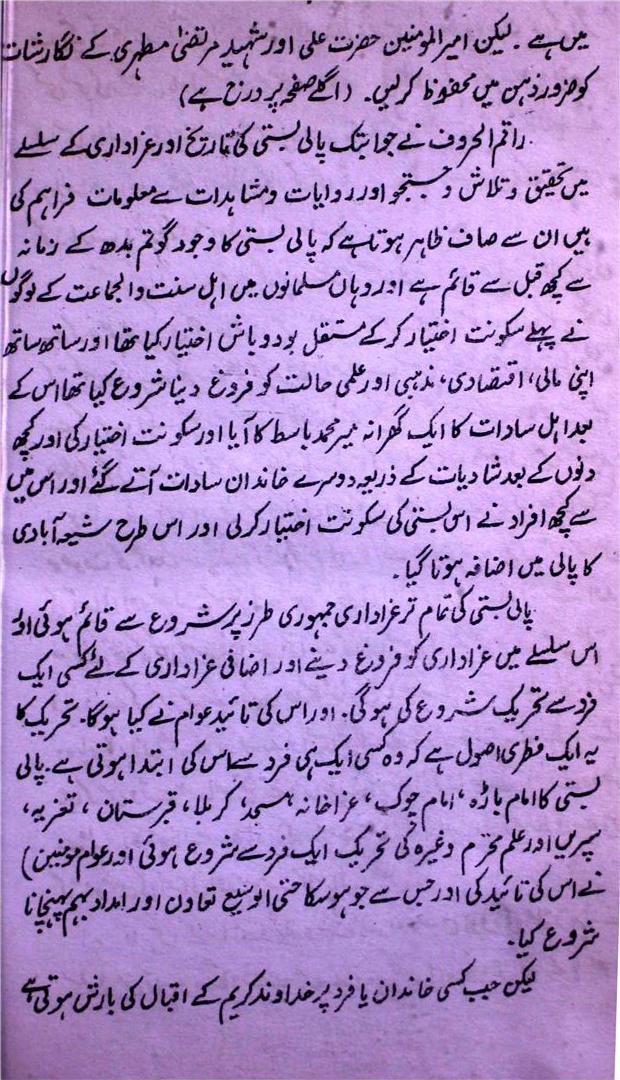 میں ہے ۔ لیکن امیر المومنین حضرت علی اور شہید مرتضیٰ مطہری کے نگارشات
کو ضرور ذہن میں محفوظ کرلیں۔ (اگلے صفحہ پر درج ہے)
راقم الحروف نے جو ابتک پالی بستی کی تاریخ اور عزاداری کے سلسلے
میں تحقیق و تلاش و جستجو اور روایات و مشاہدات سے معلومات فراہم کی
ہیں ان سے صاف ظاہر ہوتا ہے کہ پالی بستی کا وجود گوتم بدھ کے زمانہ
سے کچھ قبل سے قائم ہے اور وہاں مسلمانوں میں اہل سنت والجماعت کے لوگوں
نے پہلے سکونت اختیار کرکے مستقل بود و باش اختیار کیا تھا اور ساتھ ساتھ
اپنی مالی، اقتصادی، مذہبی اور علمی حالت کو فروغ دینا شروع کیا تھا اس کے
بعد اہل سادات کا ایک گھرانہ میر محمد باسط کا آیا اور سکونت اختیار کی اور کچھ
دنوں کے بعد شادیات کے ذریعہ دوسرے خاندان سادات آتے گئے اور اس میں
سے کچھ افراد نے اس بستی کی سکونت اختیار کرلی اور اس طرح شیعہ آبادی
کا پالی میں اضافہ ہوتا گیا۔
پالی بستی کی تمام تر عزاداری جمہوری طرز پر شروع سے قائم ہوئی اور
اس سلسلے میں عزاداری کو فروغ دینے اور اضافی عزاداری کے لئے کسی ایک
فرد سے تحریک شروع کی ہوگی۔ اور اس کی تائید عوام نے کیا ہوگا۔ تحریک کا
یہ ایک فطری اصول ہے کہ وہ کسی ایک ہی فرد سے اس کی ابتدا ہوتی ہے۔ پالی
بستی کا امام باڑہ، امام چوک، عزاخانہ، مسجد، کربلا، قبرستان، تعزیہ،
سپریں اور علم محرم وغیرہ کی تحریک ایک فرد سے شروع ہوئی اور عوام مومنین)
نے اس کی تائید کی اور جس سے جو ہوسکا حتی الوسیع تعاون اور امداد بہم پہنچانا
شروع کیا۔
لیکن جب کسی خاندان یا فرد پر خداوند کریم کے اقبال کی بارش ہوتی ہے